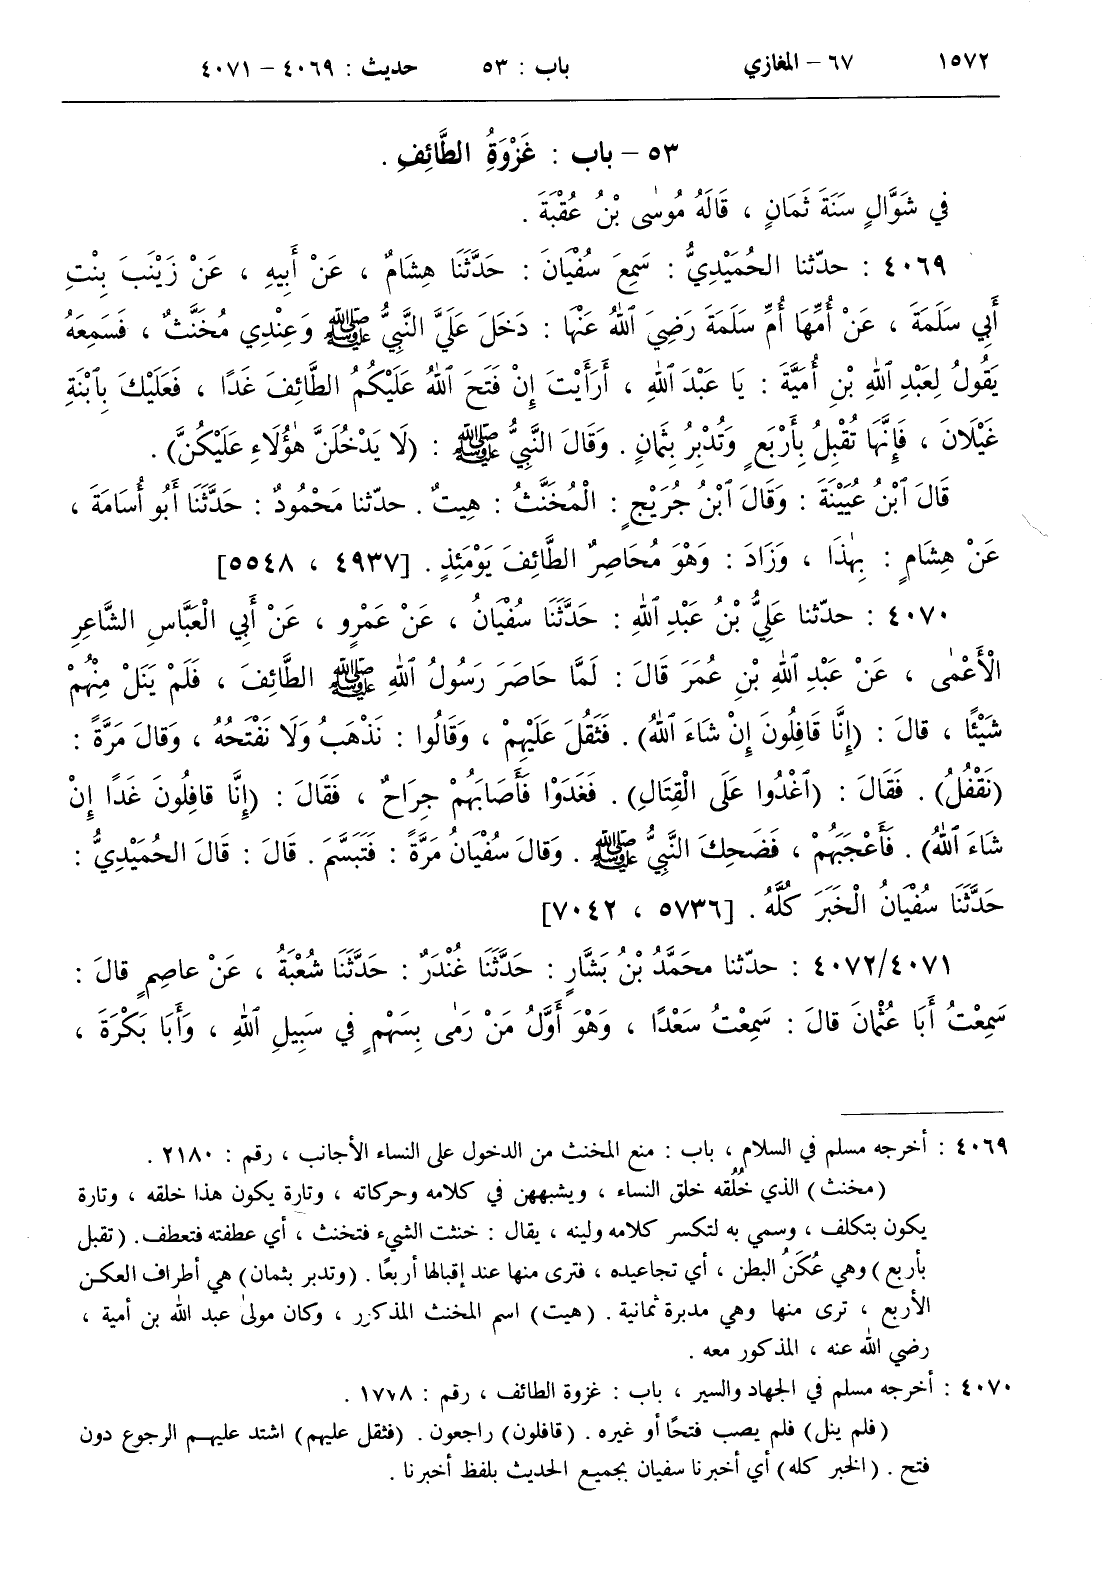 ١٥٧٢ ٦٧ – المغازي باب : ٥٣ حديث : ٤٠٦٩ – ٤٠٧١
٥٣ – باب : غَزْوَةُ الطَّائِفِ .
في شَوَّالٍ سَنَةَ ثَمَانٍ ، قَالَهُ مُوسٰى بْنُ عُقْبَةَ .
٤٠٦٩ : حدّثنا الحُمَيْدِيُّ : سَمِعَ سُفْيَانَ : حَدَّثَنَا هِشَامٌ ، عَنْ أَبِيهِ ، عَنْ زَيْنَبَ بِنْتِ
أَبِي سَلَمَةَ ، عَنْ أُمِّهَا أُمِّ سَلَمَةَ رَضِيَ ٱللهُ عَنْهَا : دَخَلَ عَلَيَّ النَّبِيُّ ﷺ وَعِنْدِي مُخَنَّثٌ ، فَسَمِعَهُ
يَقُولُ لِعَبْدِ ٱللهِ بْنِ أُمَيَّةَ : يَا عَبْدَ ٱللهِ ، أَرَأَيْتَ إِنْ فَتَحَ ٱللهُ عَلَيْكُمُ الطَّائِفَ غَدًا ، فَعَلَيْكَ بِٱبْنَةِ
غَيْلَانَ ، فَإِنَّهَا تُقْبِلُ بِأَرْبَعٍ وَتُدْبِرُ بِثَمَانٍ . وَقَالَ النَّبِيُّ ﷺ : (لَا يَدْخُلَنَّ هٰؤُلَاءِ عَلَيْكُنَّ) .
قَالَ ٱبْنُ عُيَيْنَةَ : وَقَالَ ٱبْنُ جُرَيْجٍ : الْمُخَنَّثُ : هِيتٌ . حدّثنا مَحْمُودٌ : حَدَّثَنَا أَبُو أُسَامَةَ ،
عَنْ هِشَامٍ : بِهٰذَا ، وَزَادَ : وَهْوَ مُحَاصِرٌ الطَّائِفَ يَوْمَئِذٍ . [٤٩٣٧ ، ٥٥٤٨]
٤٠٧٠ : حدّثنا عَلِيُّ بْنُ عَبْدِ ٱللهِ : حَدَّثَنَا سُفْيَانُ ، عَنْ عَمْرٍو ، عَنْ أَبِي الْعَبَّاسِ الشَّاعِرِ
الْأَعْمٰى ، عَنْ عَبْدِ ٱللهِ بْنِ عُمَرَ قَالَ : لَمَّا حَاصَرَ رَسُولُ ٱللهِ ﷺ الطَّائِفَ ، فَلَمْ يَنَلْ مِنْهُمْ
شَيْئًا ، قالَ : (إِنَّا قَافِلُونَ إِنْ شَاءَ ٱللهُ) . فَثَقُلَ عَلَيْهِمْ ، وَقَالُوا : نَذْهَبُ وَلَا نَفْتَحُهُ ، وَقالَ مَرَّةً :
(نَقْفُلُ) . فَقَالَ : (ٱغْدُوا عَلَى الْقِتَالِ) . فَغَدَوْا فَأَصَابَهُمْ جِرَاحٌ ، فَقَالَ : (إِنَّا قافِلُونَ غَدًا إِنْ
شَاءَ ٱللهُ) . فَأَعْجَبَهُمْ ، فَضَحِكَ النَّبِيُّ ﷺ . وَقالَ سُفْيَانُ مَرَّةً : فَتَبَسَّمَ . قالَ : قَالَ الحُمَيْدِيُّ :
حَدَّثَنَا سُفْيَانُ الْخَبَرَ كُلَّهُ . [٥٧٣٦ ، ٧٠٤٢]
٤٠٧٢/٤٠٧١ : حدّثنا محَمَّدُ بْنُ بَشَّارٍ : حَدَّثَنَا غُنْدَرٌ : حَدَّثَنَا شُعْبَةُ ، عَنْ عاصِمٍ قالَ :
سَمِعْتُ أَبَا عُثْمانَ قالَ : سَمِعْتُ سَعْدًا ، وَهْوَ أَوَّلُ مَنْ رَمٰى بِسَهْمٍ فِي سَبِيلِ ٱللهِ ، وَأَبَا بَكْرَةَ ،
٤٠٦٩ : أخرجه مسلم في السلام ، باب : منع المخنث من الدخول على النساء الأجانب ، رقم : ٢١٨٠ .
(مخنث) الذي خُلُقه خلق النساء ، ويشبههن في كلامه وحركاته ، وتارة يكون هذا خلقه ، وتارة
يكون بتكلف ، وسمي به لتكسر كلامه ولينه ، يقال : خنثت الشيء فتخنث ، أي عطفته فتعطف. (تقبل
بأربع) وهي عُكَنُ البطن ، أي تجاعيده ، فترى منها عند إقبالها أربعًا . (وتدبر بثمان) هي أطراف العكن
الأربع ، ترى منها وهي مدبرة ثمانية . (هيت) اسم المخنث المذكور ، وكان مولىٰ عبد الله بن أمية ،
رضي الله عنه ، المذكور معه .
٤٠٧٠ : أخرجه مسلم في الجهاد والسير ، باب : غزوة الطائف ، رقم : ١٧٧٨ .
(فلم ينل) فلم يصب فتحًا أو غيره . (قافلون) راجعون . (فثقل عليهم) اشتد عليهم الرجوع دون
فتح . (الخبر كله) أي أخبرنا سفيان بجميع الحديث بلفظ أخبرنا .